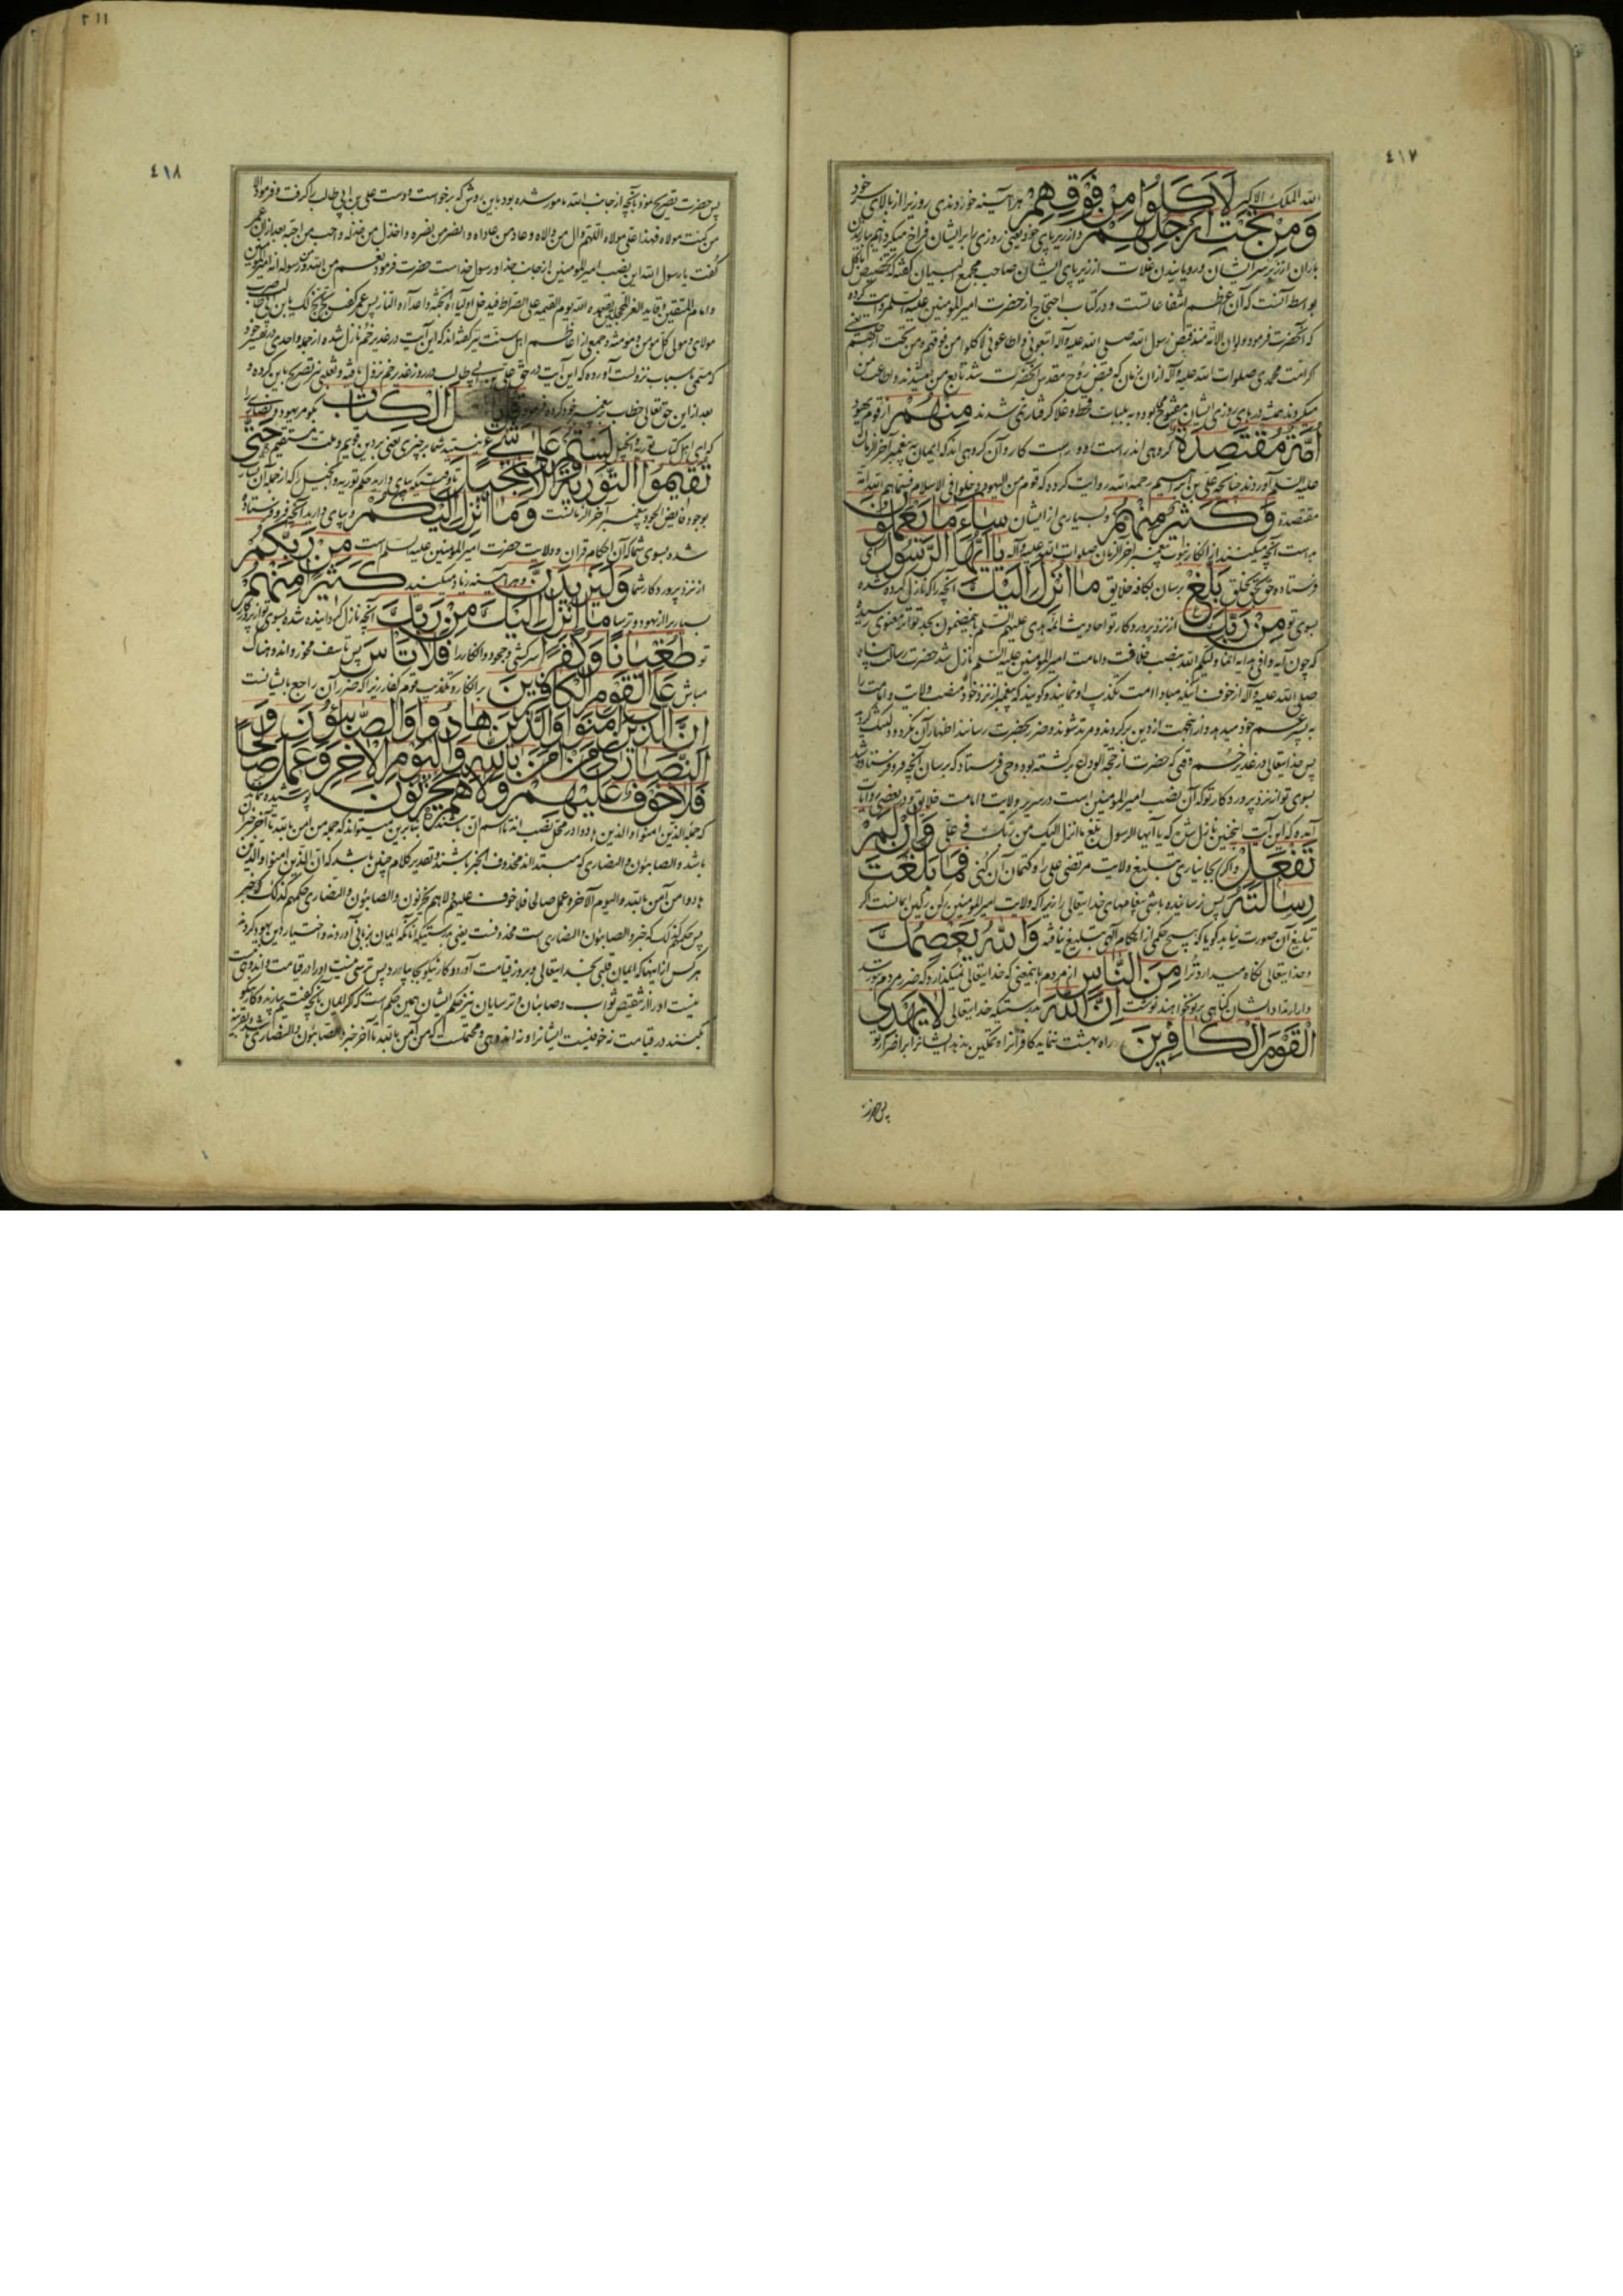 ٤١٧
الله الملك الاكبر لَاَكَلُوا مِنْ فَوْقِهِمْ هر آینه خوردندی روزیرا از بالای خود
وَمِنْ تَحْتِ اَرْجُلِهِمْ و از زیر پای خود یعنی روزی را بر ایشان فراخ میکردم
باران از زبر سر ایشان و رویانیدن غلات از زیر پای ایشان صاحب مجمع البیان گفته که تخصیص اکل
بواسطه آنست که آن اعظم انتفاعاتست و در کتاب احتجاج از حضرت امیرالمؤمنین علیه السلم روایت کرده
که آنحضرت فرمود ولو ان الامة منذ قبض رسول الله صلی الله علیه وآله اتبعونی و اطاعونی لاکلوا من فوقهم ومن تحت ارجلهم یعنی
اگر امت محمدی صلوات الله علیه وآله از ان زمان که قبض روح مقدس آنحضرت شد تابع من میشدند و اطاعت من
میکردند روزی ایشان بود و به بلیات قحط و غلا گرفتار نمی شدند مِنْهُمْ از قوم یهود
اُمَّةٌ مُقْتَصِدَةٌ گروهی اند راست رو و راست کار و آن گروهی اند که ایمان به پیغمبر آخر الزمان
علیه السلم آوردند چنانچه علی بن ابراهیم رحمه الله روایت کرده که قوم من الیهود دخلوا فی الاسلام فسماهم الله امة
مقتصدة وَكَثِيرٌ مِنْهُمْ و بسیاری از ایشان سَاءَ مَا يَعْمَلُونَ
بد است آنچه میکنند از انکار نبوت پیغمبر آخر الزمان صلوات الله علیه وآله يَا اَيُّهَا الرَّسُولُ ای
فرستاده حق بخلق بَلِّغْ برسان بکافه خلایق مَا اُنْزِلَ اِلَيْكَ آنچه را که نازل کرده شده
بسوی تو مِنْ رَبِّكَ از نزد پرورد کار تو احادیث ائمه هدی علیهم السلم باینمضمون بحد تواتر معنوی رسیده
که چون آیه وافی هدایه انما ولیکم الله بنصب خلافت و امامت امیرالمؤمنین علیه السلم نازل شد حضرت رسالت پناه
صلی الله علیه وآله از خوف آنکه مبادا امت تکذیب او نمایند و گویند که پیغمبر از نزد خود منصب ولایت و امامت را
به پسر عم خود میدهد و از اینجهت از دین برگردند و مرتد شوند و ضرر بحضرت رسانند اظهار آن نکرد
پس خدایتعالی در غدیر خم وقتی که حضرت از حجة الوداع برگشته بود وحی فرستاد که برسان آنچه فرو فرستاده شد
بسوی تو از نزد پروردکار تو که آن نصب امیرالمؤمنین است در سریر ولایت و امامت خلایق و در بعضی روایات
آمده که این آیت اینچنین نازل شده که یا ایها الرسول بلغ ما انزل الیک من ربک فی علی وَاِنْ لَمْ
تَفْعَلْ و اگر بجا نیاری تبلیغ ولایت مرتضی علی را و کتمان آن کنی فَمَا بَلَّغْتَ
رِسَالَتَهُ پس نرسانیده باشی پیغامهای خدایتعالی را زیرا که ولایت امیرالمؤمنین رکن رکین ایمانست اگر
تبلیغ آن صورت نیابد گویا که هیچ حکمی از احکام الهی تبلیغ نیافته وَاللهُ يَعْصِمُكَ
و خدایتعالی نگاه میدارد ترا مِنَ النَّاسِ از مردم باینمعنی که خدایتعالی نمیگذارد که ضرر مردم بتو رسد
و از ارتداد ایشان گناهی بر تو نخواهند نوشت اِنَّ اللهَ بدرستیکه خدایتعالی لَا يَهْدِي
الْقَوْمَ الْكَافِرِينَ راه بهشت ننماید کافرانرا و تمکین ندهد ایشانرا بر اضرار تو
پس حضرت
٤١٨
پس حضرت تصریح نمود بآنچه از جانب الله مامور شده بود باین روش که برخواست و دست علی بن ابی طالب را گرفت و فرمود الا
من کنت مولاه فهذا علی مولاه اللهم وال من والاه و عاد من عاداه و انصر من نصره و اخذل من خذله و احب من احبه بعد از ان عمر
گفت یا رسول الله این نصب امیرالمؤمنین از جانب خدا و رسول خداست حضرت فرمود نعم من الله و من رسوله انه امیرالمؤمنین
و امام المتقین و قاید الغر المحجلین یقعده الله یوم القیمة علی الصراط فیدخل اولیاءه الجنة و اعداءه النار پس عمر گفت بخ بخ لک یا بن ابی طالب
مولای و مولی کل مؤمن و مؤمنة و جمعی از اعاظم اهل سنت نیز گفته اند که این آیت در غدیر خم نازل شده از جمله واحدی در تفسیر خود
که مسمی باسباب نزولست آورده که این آیت در حق علی بن ابی طالب در روز غدیر خم نزول یافته و ثعلبی نیز تصریح باین کرده و
بعد از این حق تعالی خطاب به پیغمبر خود کرده فرمود قُلْ يَا اَهْلَ الْكِتَابِ بگو مر یهود و نصاری را
که ای اهل کتاب توریة و انجیل لَسْتُمْ عَلَى شَيْءٍ نیستید شما بر چیزی یعنی بر دین قویم و ملت مستقیم حَتَّى
تُقِيمُوا التَّوْرِيةَ وَالْاِنْجِيلَ تا وقتیکه بپای دارید حکم توریة و انجیل را که از جمله آن
بوجود پیغمبر آخر الزمانست وَمَا اُنْزِلَ اِلَيْكُمْ و بپای دارید آنچه فرو فرستاده
شده بسوی شما که آن احکام قران و ولایت حضرت امیرالمؤمنین علیه السلم است مِنْ رَبِّكُمْ
از نزد پرورد کار شما وَلَيَزِيدَنَّ و هر آینه زیاد میکنید كَثِيرًا مِنْهُمْ
بسیاریرا از یهود و ترسا مَا اُنْزِلَ اِلَيْكَ مِنْ رَبِّكَ آنچه نازل گردانیده شده بسوی تو از پروردکار
تو طُغْيَانًا وَكُفْرًا سرکشی و جحود و انکار را فَلَا تَاْسَ پس تاسف مخور و اندوهناک
مباش عَلَى الْقَوْمِ الْكَافِرِينَ بر انکار و تکذیب قوم کفار زیرا که ضرر آن راجع بایشانست
اِنَّ الَّذِينَ اٰمَنُوا وَالَّذِينَ هَادُوا وَالصَّابِئُونَ وَ
النَّصَارٰى مَنْ اٰمَنَ بِاللهِ وَالْيَوْمِ الْاٰخِرِ وَعَمِلَ صَالِحًا
فَلَا خَوْفٌ عَلَيْهِمْ وَلَا هُمْ يَحْزَنُونَ پوشیده نماند
که جمله الذین امنوا و الذین هادوا در محل نصب اند تا اسم ان باشند بنابرین میتواند که جمله من امن بالله تا آخر خبر
باشد و الصابئون و النصاری که مبتدا اند محذوف الخبر باشند و تقدیر کلام چنین باشد که ان الذین امنوا و الذین
هادوا من آمن بالله و الیوم الآخر و عمل صالحا فلا خوف علیهم و لا هم یحزنون و الصابئون و النصاری حکمهم کذلک
پس حکمهم کذلک که خبر و الصابئون و النصاری است محذوفست یعنی بدرستیکه آنانکه ایمان بزبانی آوردند و اختیار دین یهود کردند
هر کس از اینها که ایمان قلبی بخدایتعالی و بروز قیامت آورد و کار نیکو بجا بیاورد پس ترسی نیست او را در قیامت و اندوهی
نیست او را از نقص ثواب و صابئان و ترسایان نیز حکم ایشان همین حکم است که اگر ایمان بیارند و کار نیکو
بکنند در قیامت نه خوفیست ایشانرا و نه اندوهی و محتملست که من آمن بالله تا آخر خبر الصابئون و النصاری باشد